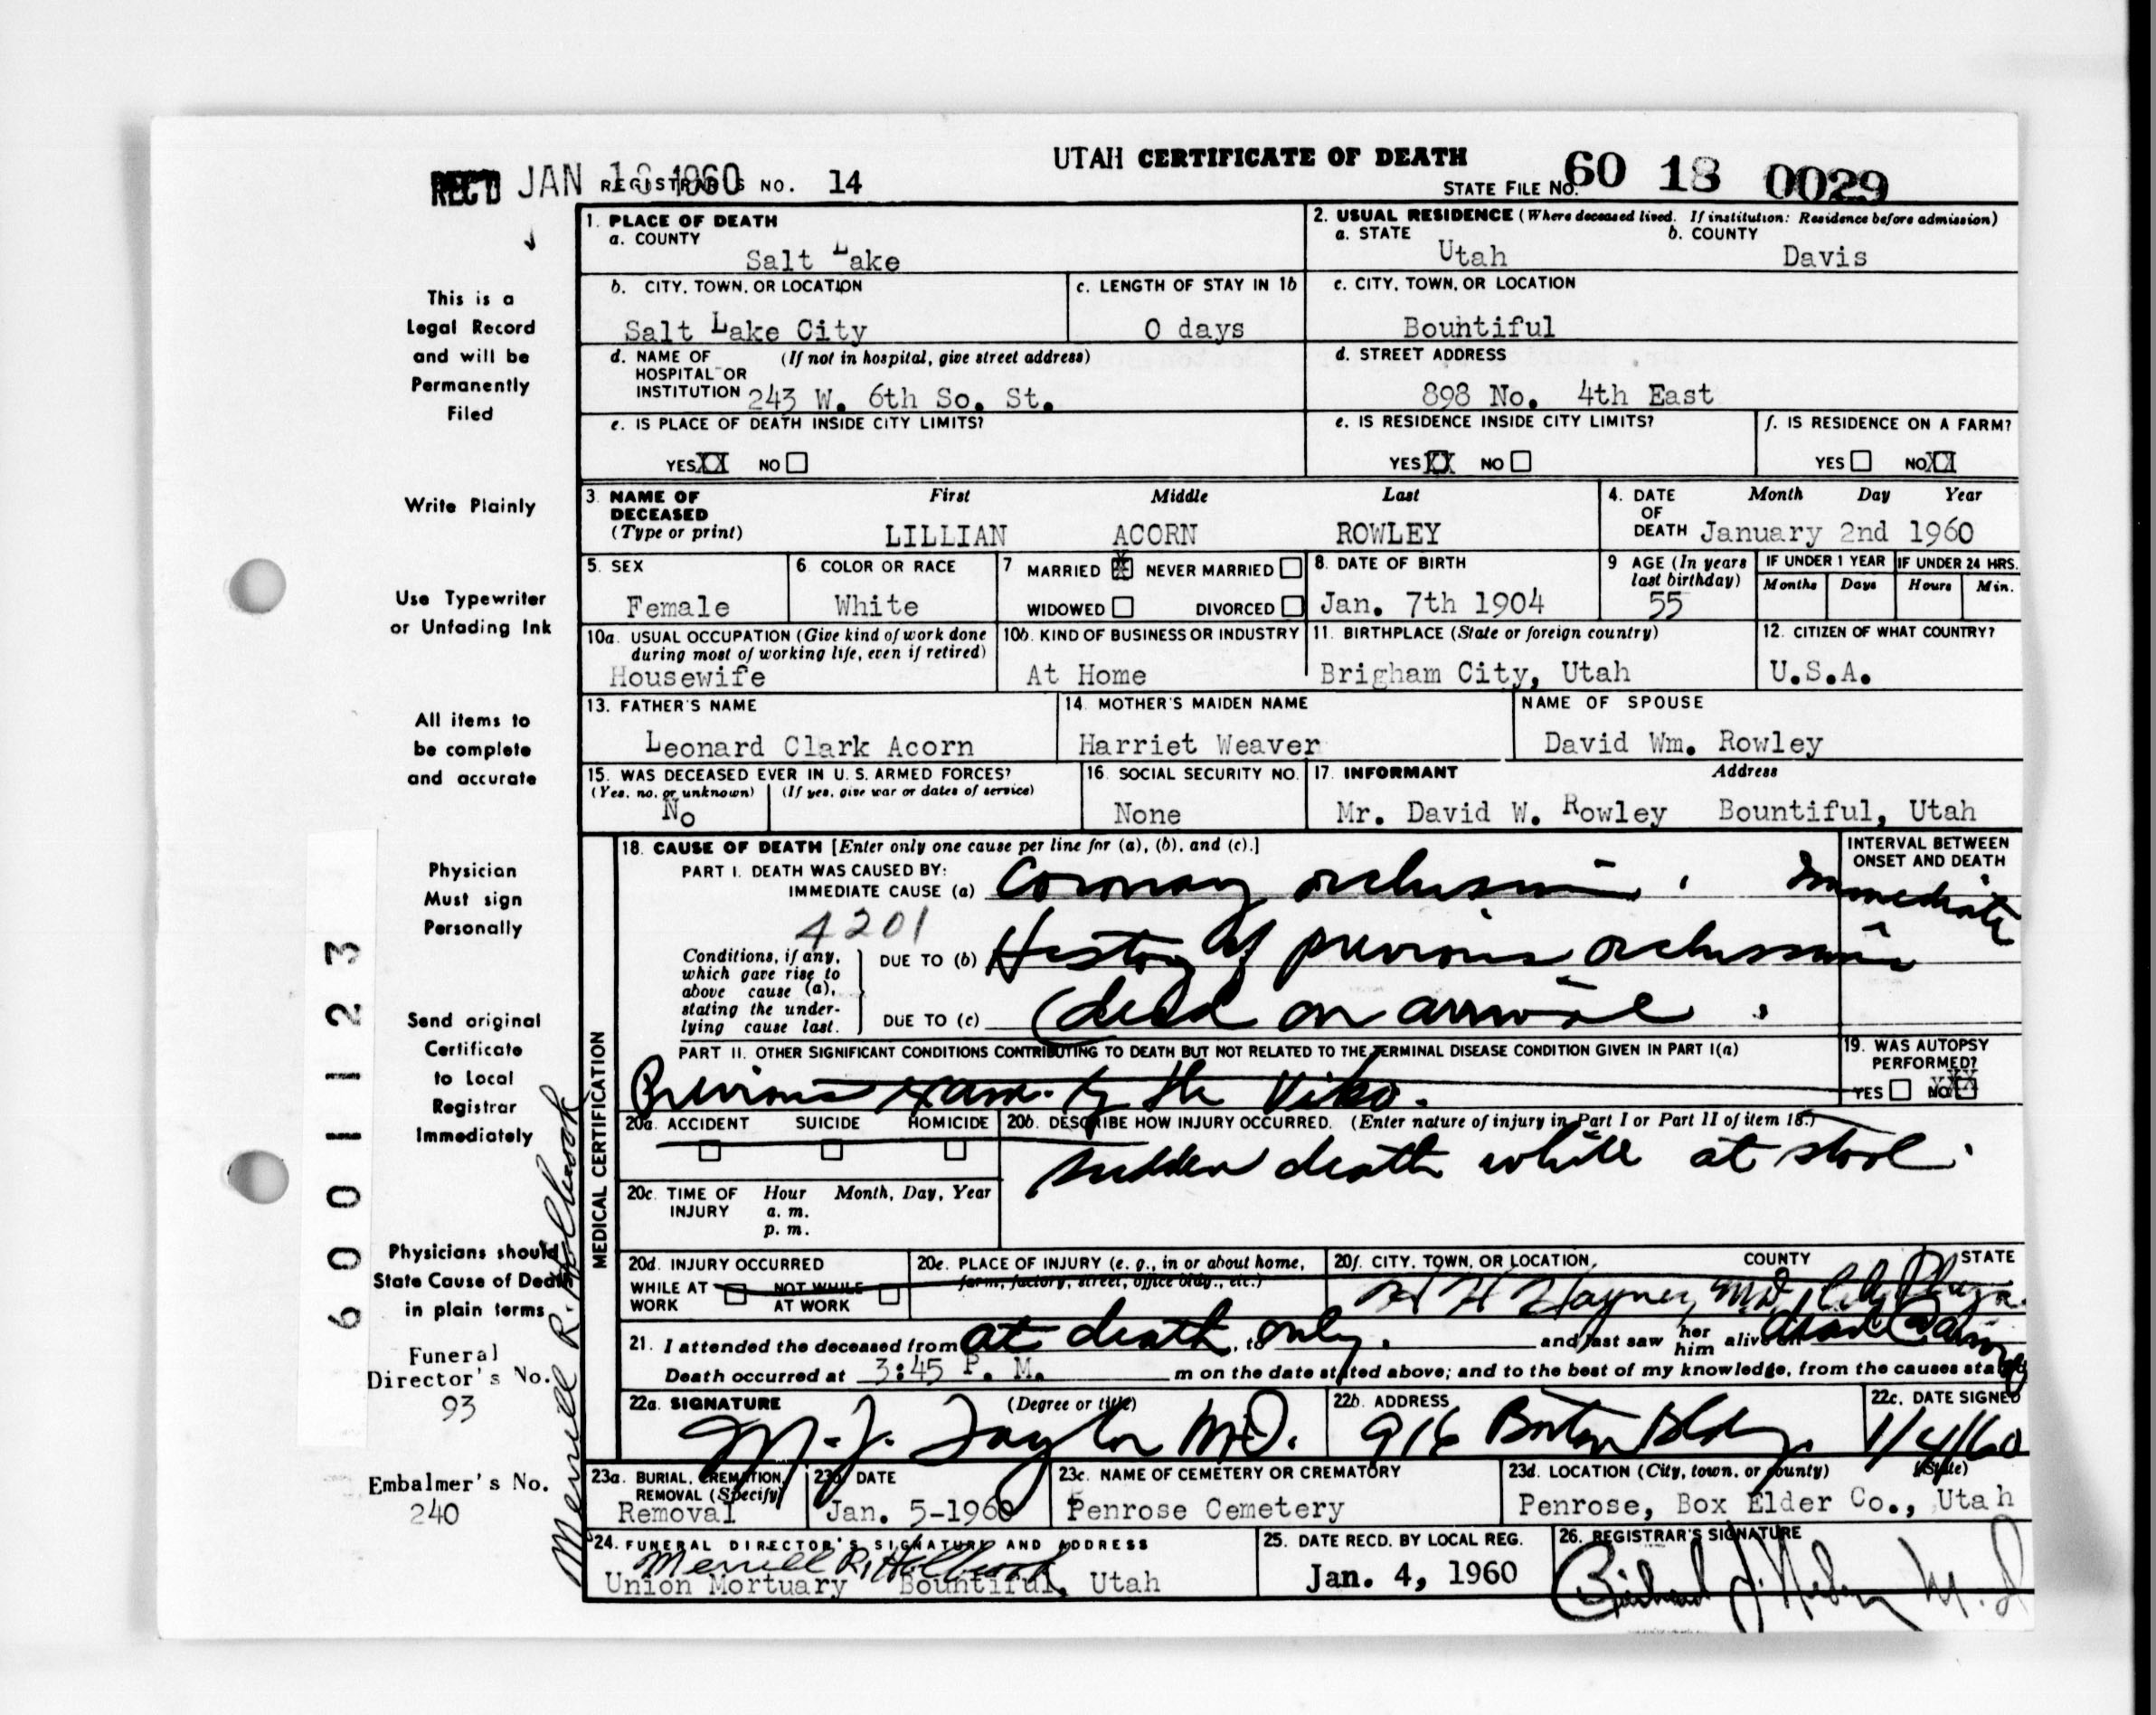 UTAH CERTIFICATE OF DEATH
REC'D JAN 1960 REGISTRAR'S NO. 14
STATE FILE NO. 60 18 0029
1. PLACE OF DEATH
a. COUNTY
Salt Lake
2. USUAL RESIDENCE (Where deceased lived. If institution: Residence before admission)
a. STATE Utah b. COUNTY Davis
b. CITY, TOWN, OR LOCATION
Salt Lake City
c. LENGTH OF STAY IN 1b
0 days
c. CITY, TOWN, OR LOCATION
Bountiful
d. NAME OF HOSPITAL OR INSTITUTION (If not in hospital, give street address)
243 W. 6th So. St.
d. STREET ADDRESS
898 No. 4th East
e. IS PLACE OF DEATH INSIDE CITY LIMITS?
YES XX NO
e. IS RESIDENCE INSIDE CITY LIMITS?
YES XX NO
f. IS RESIDENCE ON A FARM?
YES NO XX
3. NAME OF DECEASED (Type or print)
First Middle Last
LILLIAN ACORN ROWLEY
4. DATE OF DEATH Month Day Year
January 2nd 1960
5. SEX
Female
6. COLOR OR RACE
White
7 MARRIED X NEVER MARRIED
WIDOWED DIVORCED
8. DATE OF BIRTH
Jan. 7th 1904
9 AGE (In years last birthday)
55
IF UNDER 1 YEAR
Months Days
IF UNDER 24 HRS.
Hours Min.
10a. USUAL OCCUPATION (Give kind of work done during most of working life, even if retired)
Housewife
10b. KIND OF BUSINESS OR INDUSTRY
At Home
11. BIRTHPLACE (State or foreign country)
Brigham City, Utah
12. CITIZEN OF WHAT COUNTRY?
U.S.A.
13. FATHER'S NAME
Leonard Clark Acorn
14. MOTHER'S MAIDEN NAME
Harriet Weaver
NAME OF SPOUSE
David Wm. Rowley
15. WAS DECEASED EVER IN U. S. ARMED FORCES?
(Yes, no, or unknown) (If yes, give war or dates of service)
No
16. SOCIAL SECURITY NO.
None
17. INFORMANT Address
Mr. David W. Rowley Bountiful, Utah
MEDICAL CERTIFICATION
18. CAUSE OF DEATH [Enter only one cause per line for (a), (b), and (c).]
INTERVAL BETWEEN ONSET AND DEATH
PART I. DEATH WAS CAUSED BY:
IMMEDIATE CAUSE (a) Coronary occlusion. Immediate
4201
Conditions, if any, which gave rise to above cause (a), stating the underlying cause last.
DUE TO (b) History of previous occlusion
DUE TO (c) (dead on arrival
PART II. OTHER SIGNIFICANT CONDITIONS CONTRIBUTING TO DEATH BUT NOT RELATED TO THE TERMINAL DISEASE CONDITION GIVEN IN PART I(a)
Previous exam. by
19. WAS AUTOPSY PERFORMED?
YES NO XXX
20a. ACCIDENT SUICIDE HOMICIDE
20b. DESCRIBE HOW INJURY OCCURRED. (Enter nature of injury in Part I or Part II of item 18.)
sudden death while at stool.
20c. TIME OF INJURY Hour Month, Day, Year
a. m.
p. m.
20d. INJURY OCCURRED
WHILE AT WORK NOT WHILE AT WORK
20e. PLACE OF INJURY (e. g., in or about home, farm, factory, street, office bldg., etc.)
20f. CITY, TOWN, OR LOCATION COUNTY STATE
21. I attended the deceased from at death, to only. and last saw her him alive on dead
Death occurred at 3:45 P. M. m on the date stated above; and to the best of my knowledge, from the causes stated
22a. SIGNATURE (Degree or title)
M. J. Taylor M.D.
22b. ADDRESS
916 Boston Bldg.
22c. DATE SIGNED
1/4/60
23a. BURIAL, CREMATION, REMOVAL (Specify)
Removal
23b. DATE
Jan. 5-1960
23c. NAME OF CEMETERY OR CREMATORY
Penrose Cemetery
23d. LOCATION (City, town, or county) (State)
Penrose, Box Elder Co., Utah
24. FUNERAL DIRECTOR'S SIGNATURE AND ADDRESS
Merrill R. Holbrook
Union Mortuary Bountiful, Utah
25. DATE RECD. BY LOCAL REG.
Jan. 4, 1960
26. REGISTRAR'S SIGNATURE
This is a
Legal Record
and will be
Permanently
Filed
Write Plainly
Use Typewriter
or Unfading Ink
All items to
be complete
and accurate
Physician
Must sign
Personally
Send original
Certificate
to Local
Registrar
Immediately
Physicians should
State Cause of Death
in plain terms
Funeral
Director's No.
93
Embalmer's No.
240
Merrill R. Holbrook
6001123